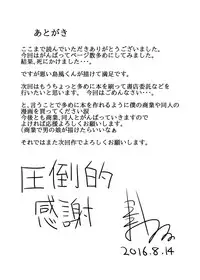 あとがき
ここまで読んでいただきありがとうございました。
今回はがんばってページ数多めにしてみました。
結果、死にかけました･･･。
ですが悪い島風くんが描けて満足です。
次回はもうちょっと多めに本を刷って書店委託などを
行いたいと思います。 今回はごめんなさい･･･
と、言うことで多めに本を作れるように僕の商業や同人の
漫画を買ってください涙
今後とも商業、同人とがんばっていきますので
よければ応援よろしくお願いします。
(商業で男の娘が描けたらいいなぁ
それではまた次回作でよろしくお願いします。
圧倒的
感謝
2016.8.14